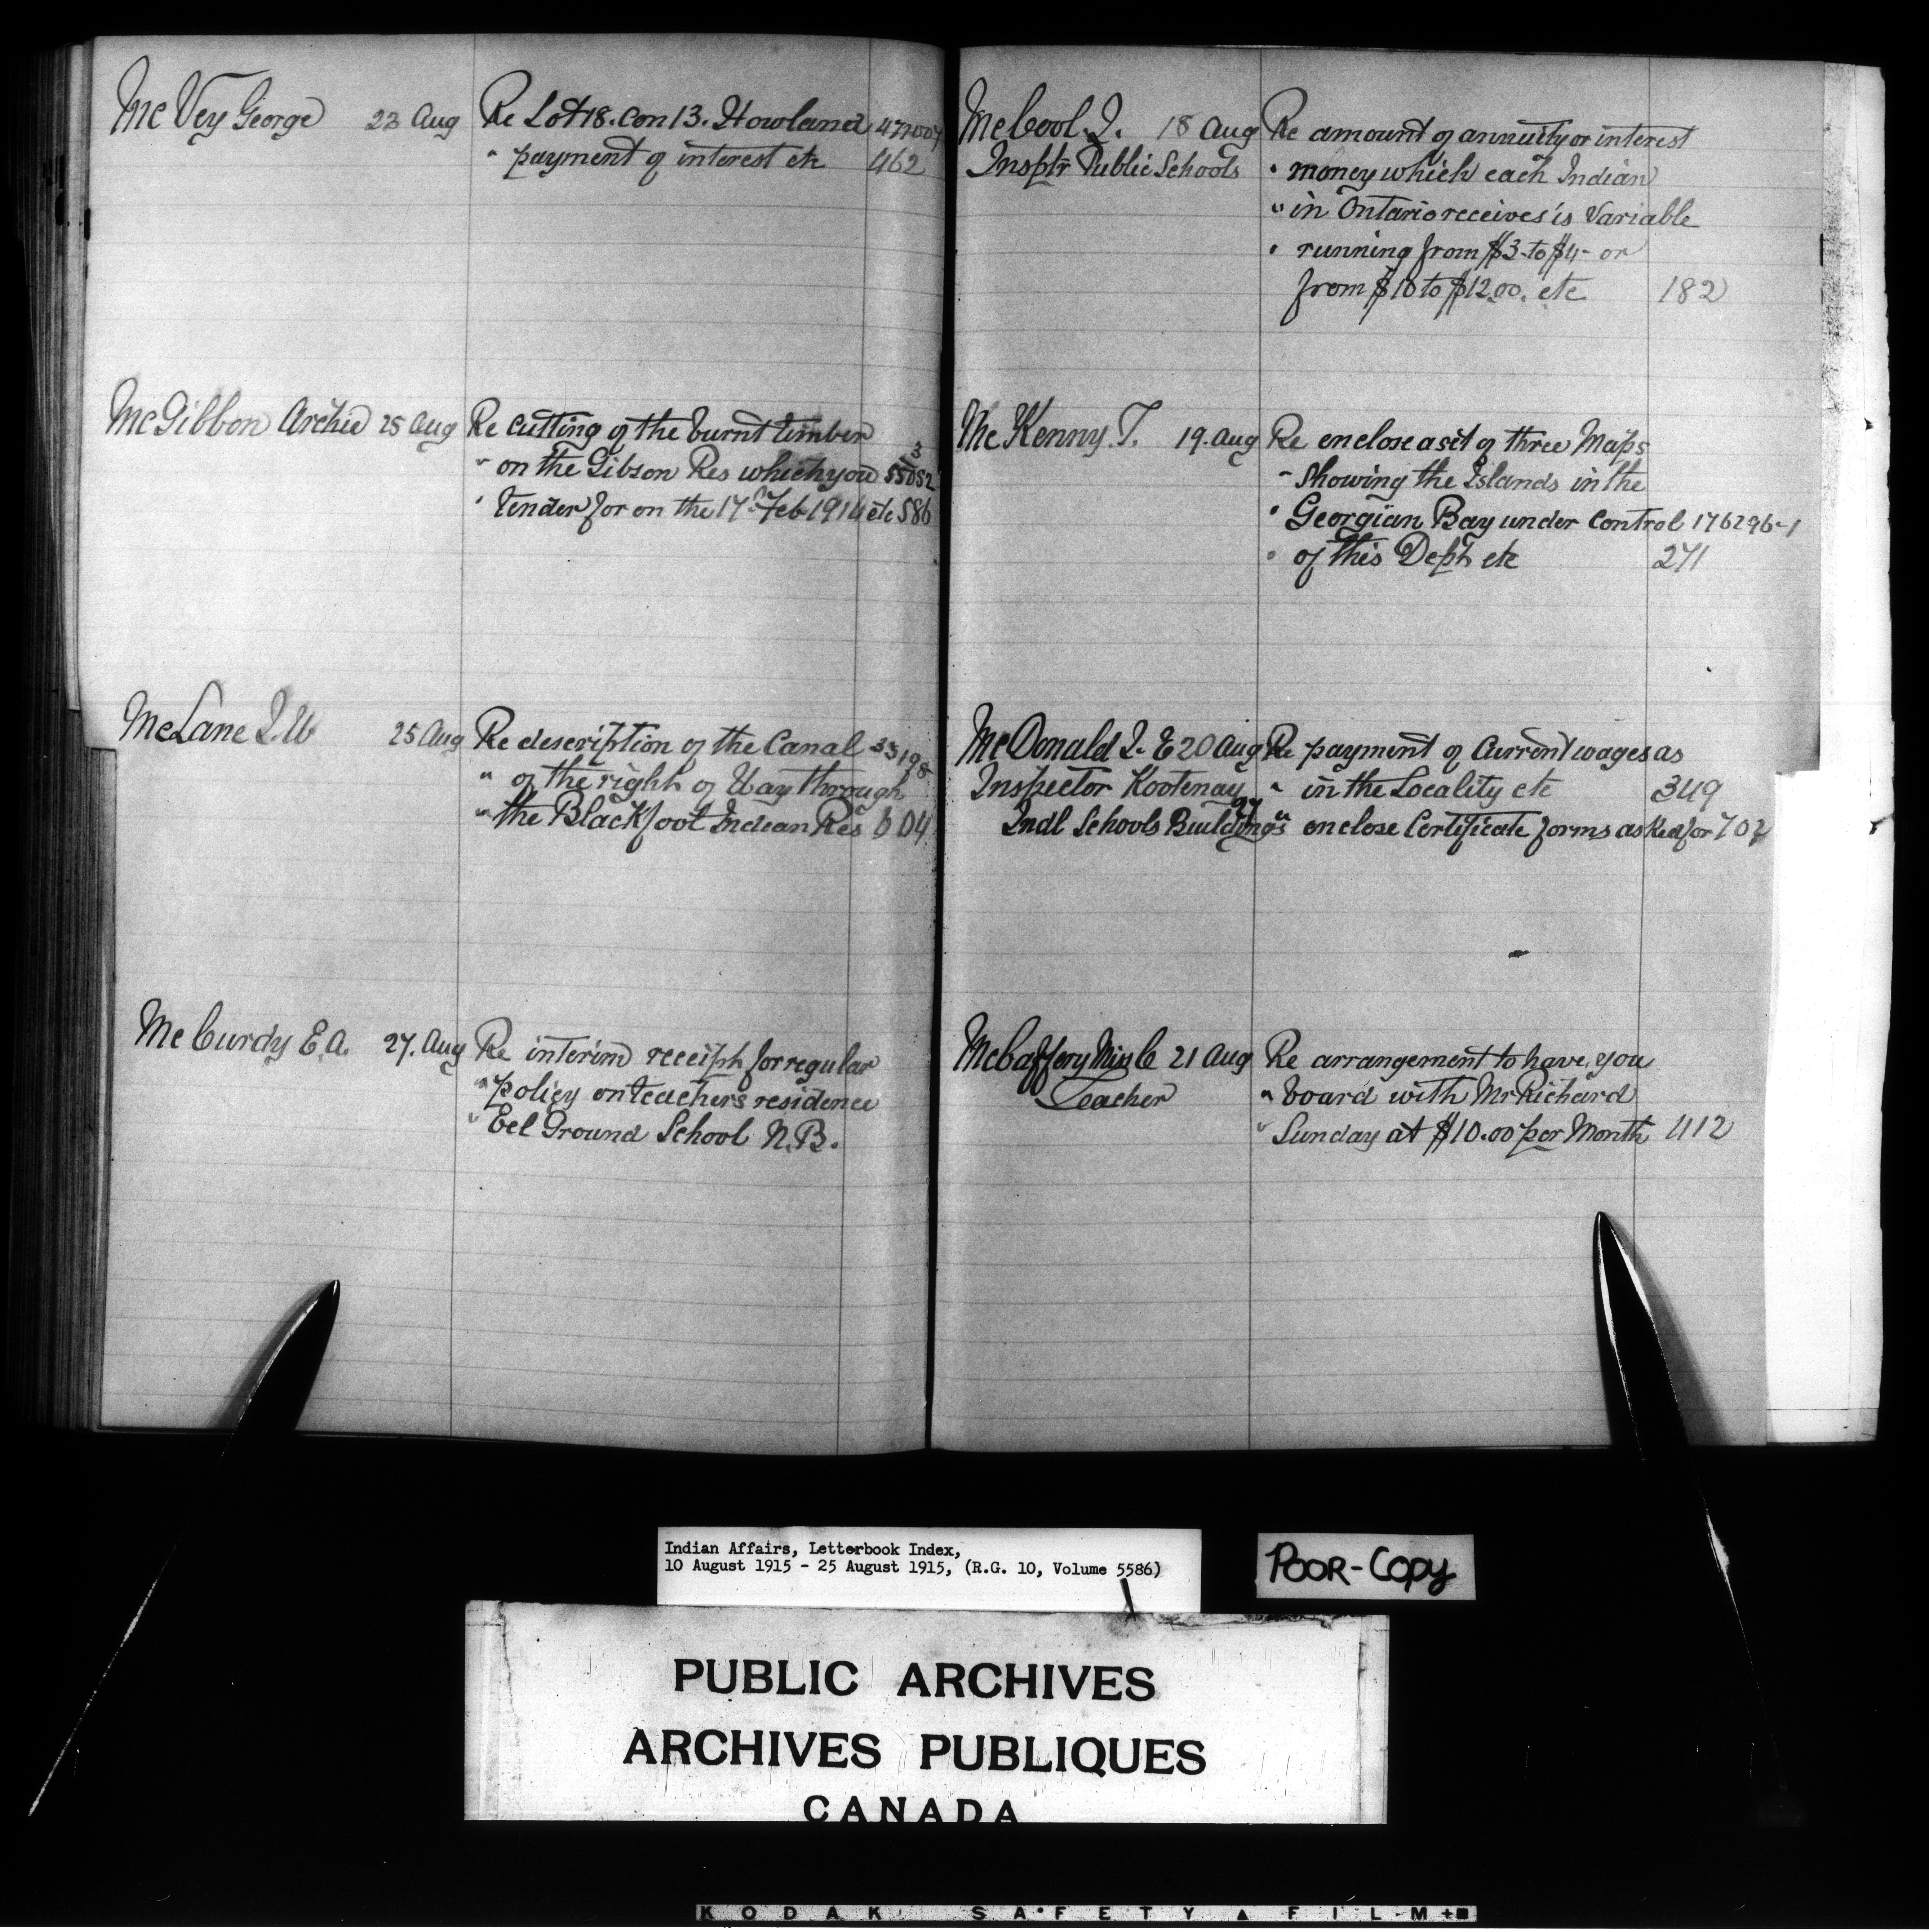 McVey George 23 Aug Re Lot 18. Con 13. Howland
" payment of interest etc 462
McGibbon Archie 25 Aug Re cutting of the burnt timber
" on the Gibson Res which you 55052 3
" Tender for on the 17th Feb 1914 etc 586
McLane J.W 25 Aug Re description of the Canal 33198
" of the right of Way through
" the Blackfoot Indian Res 604
McCurdy E.A. 27. Aug Re interim receipt for regular
" policy on teachers residence
" Eel Ground School N.B.
McCool. J. 18 Aug Re amount of annuity or interest
Insptr Public Schools " money which each Indian
" in Ontario receives is Variable
" running from $3- to $4- or
from $10 to $12.00. etc 182
McKenny. T. 19. Aug Re enclose a set of three Maps
" Showing the Islands in the
" Georgian Bay under Control 176296-1
" of this Dept etc 271
McDonald J. E 20 Aug Re payment of Current wages as
Inspector Kootenay " in the Locality etc 349
Indl Schools Buildings 27 " enclose Certificate forms asked for 702
McCaffery Miss C 21 Aug Re arrangement to have you
Teacher " board with Mr Richard
" Sunday at $10.00 per Month 412
Indian Affairs, Letterbook Index,
10 August 1915 - 25 August 1915, (R.G. 10, Volume 5586)
POOR-COPY
PUBLIC ARCHIVES
ARCHIVES PUBLIQUES
CANADA
KODAK SAFETY ▲ FILM